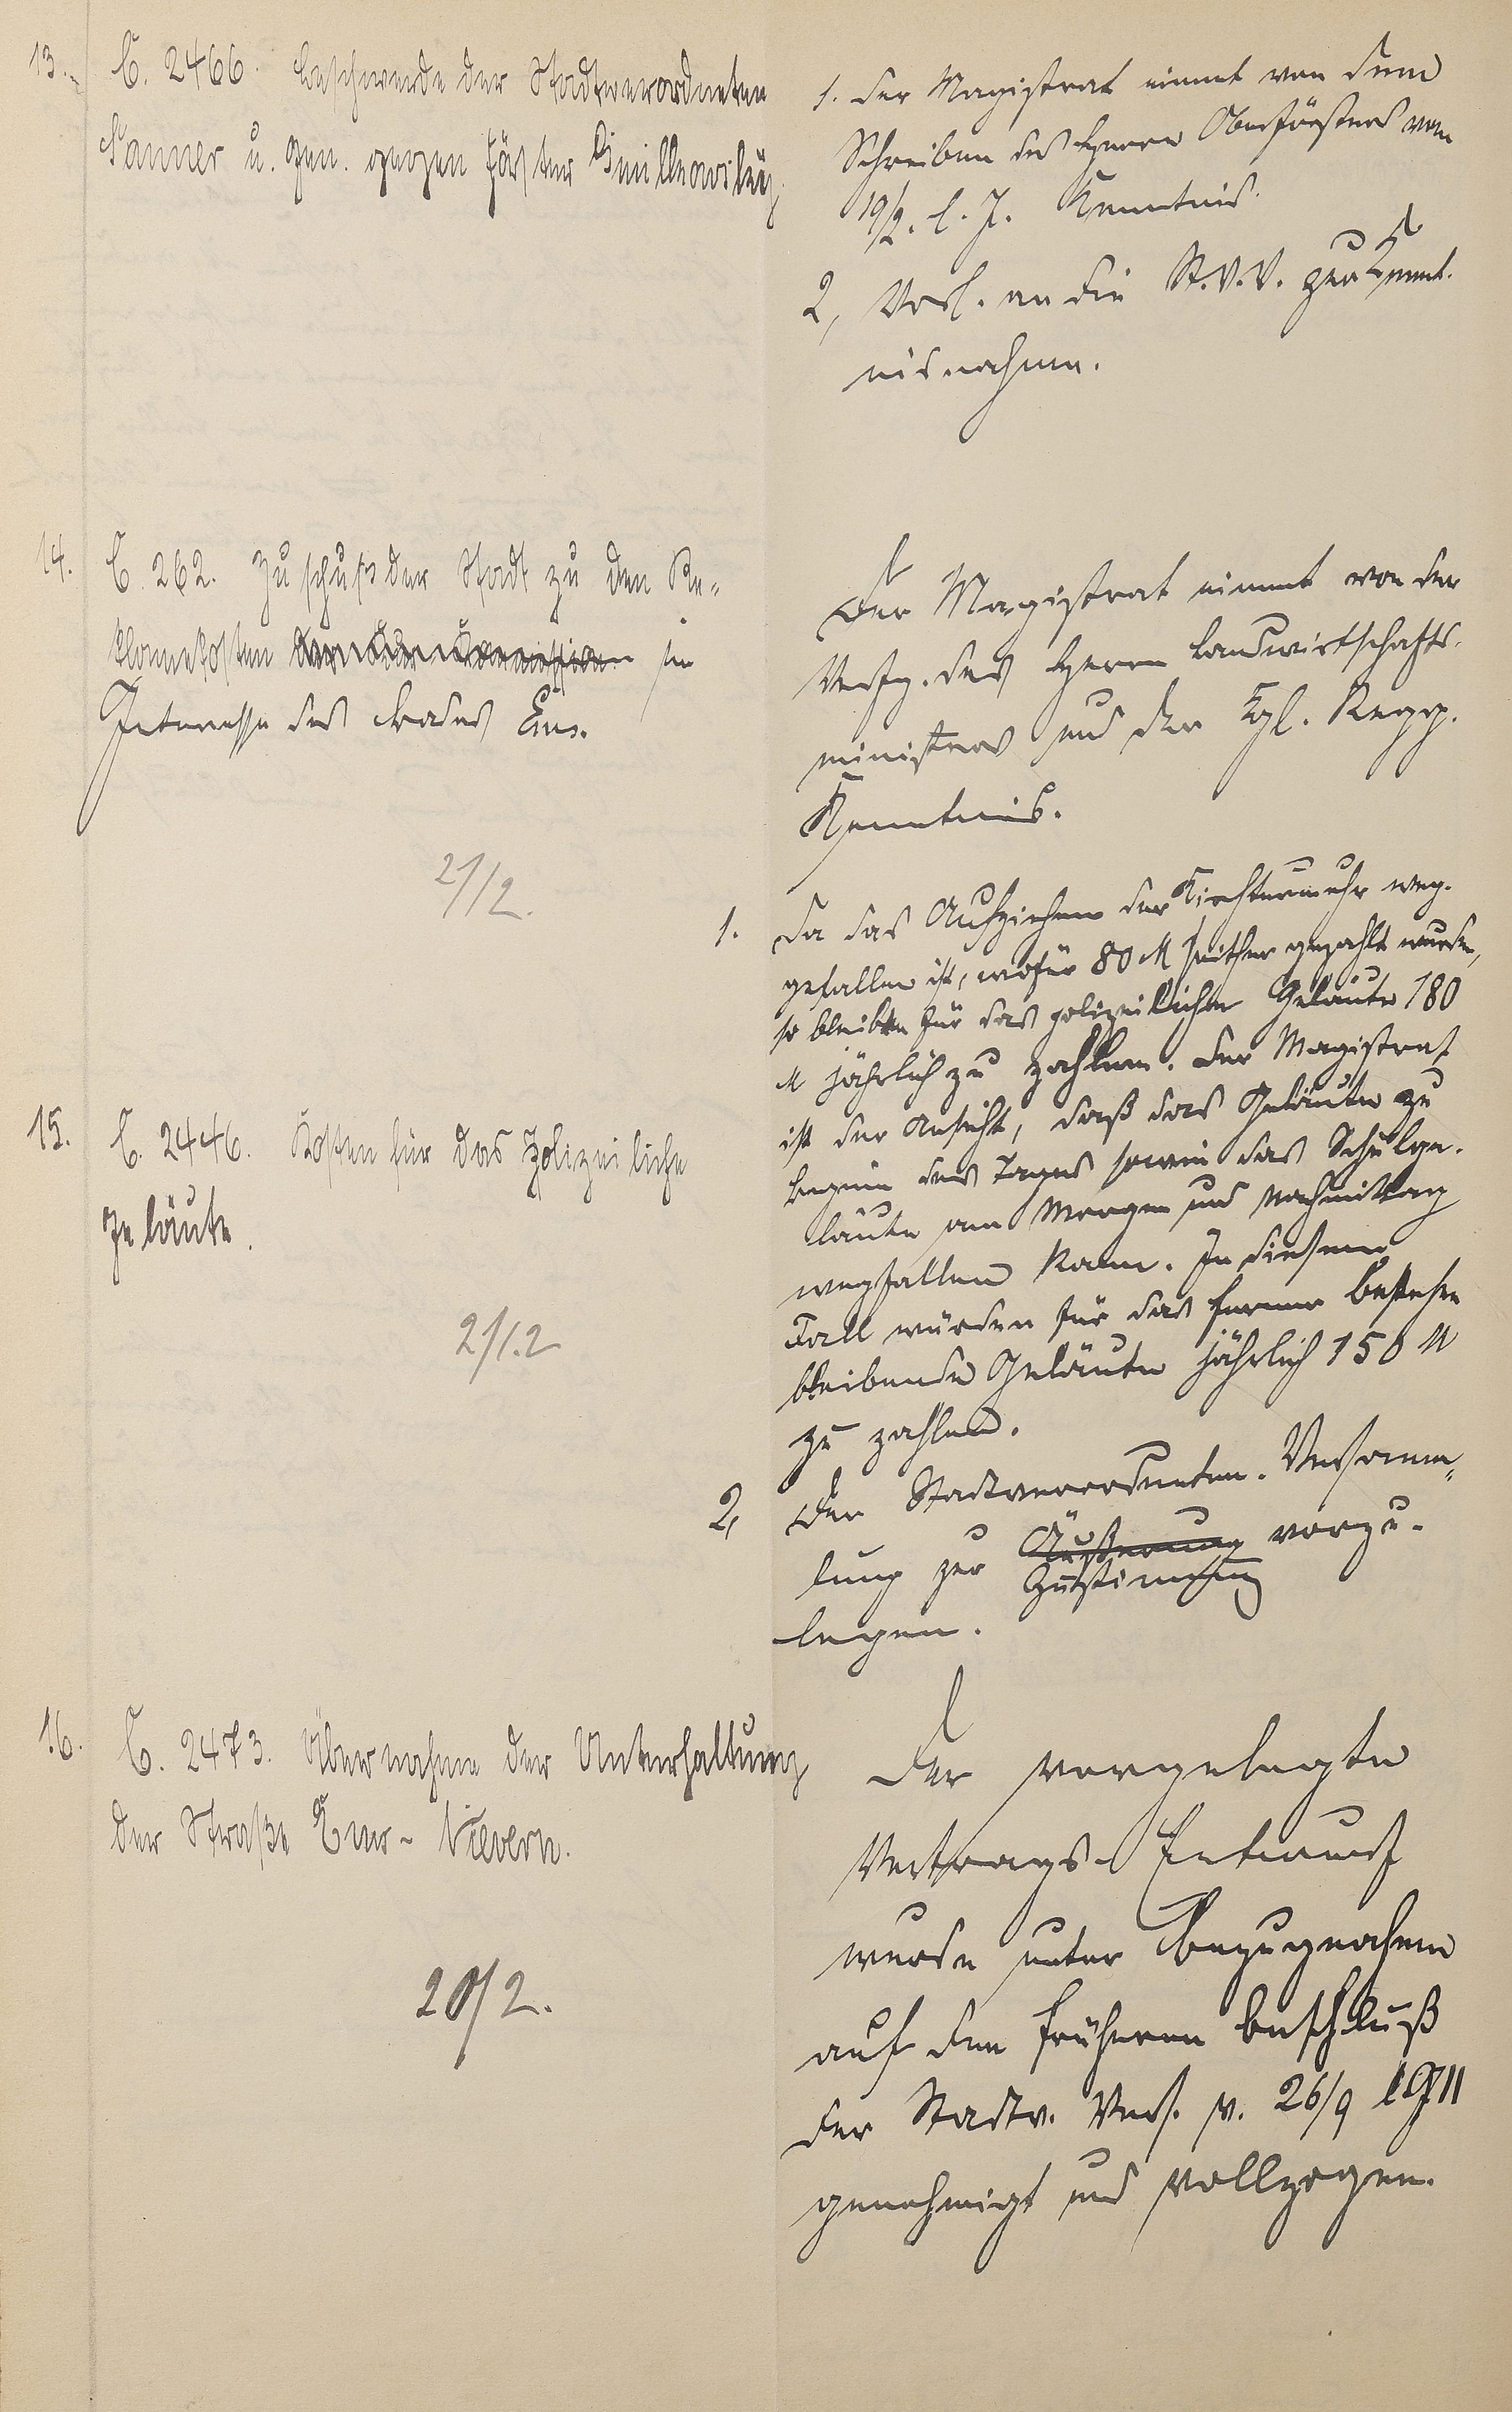 13. C. 2466. Beschwerde der Stadtverordneten
Sanner u. Gen. gegen Förster
1. Der Magistrat nimmt von dem
Schreiben des Herrn Oberförsters vom
19/2. l. J. Kenntnis.
2, Vorl. an die St.V.V. zur Kennt-
nisnahme.
14. C. 262. Zuschuß der Stadt zu den Re-
klamekosten der Kurkommission im
Interesse des Bades Ems.
21/2.
Der Magistrat nimmt von der
Verfg. des Herrn Landwirtschafts-
ministers und der Kgl. Regg.
Kenntnis.
15. C. 2446. Kosten für das polizeiliche
Geläute.
21.2
1. Da das Aufziehen der Kirchturmuhr weg-
gefallen ist, wofür 80 M seither gezahlt wurden,
so bleiben für das polizeiliche Geläute 180
M jährlich zu zahlen. Der Magistrat
ist der Ansicht, daß das Geläute zu
Beginn des Tages sowie das Schulge-
läute am Morgen und Nachmittag
wegfallen kann. In diesem
Fall würden für das ferner bestehen
bleibende Geläute jährlich 150 M
zu zahlen.
2, Der Stadtverordneten-Versamm-
lung zur Äußerung vorzu-
Zustimmung
legen.
16. C. 2473. Übernahme der Unterhaltung
der Straße Ems-Nievern.
20/2.
Der vorgelegte
Vertrags-Entwurf
wurde unter Bezugnahme
auf den früheren Beschluß
der Stadtv. Vers. v. 26/9 1911
genehmigt und vollzogen.